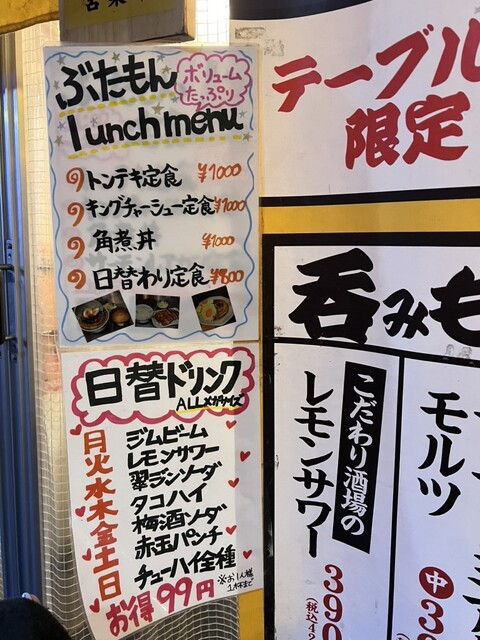 営業
ぶたもん
ボリューム
たっぷり
lunch menu
トンテキ定食 ¥1000
キングチャーシュー定食 ¥1000
角煮丼 ¥1000
日替わり定食 ¥800
日替ドリンク
ALLメガサイズ
月 ジムビーム
火 レモンサワー
水 翠ジンソーダ
木 タコハイ
金 梅酒ソーダ
土 赤玉パンチ
日 チューハイ全種
お得 99円
※お1人様
1杯まで
テーブル
限定
呑みも
こだわり酒場の
レモンサワー
390
(税込42
モルツ
中 3